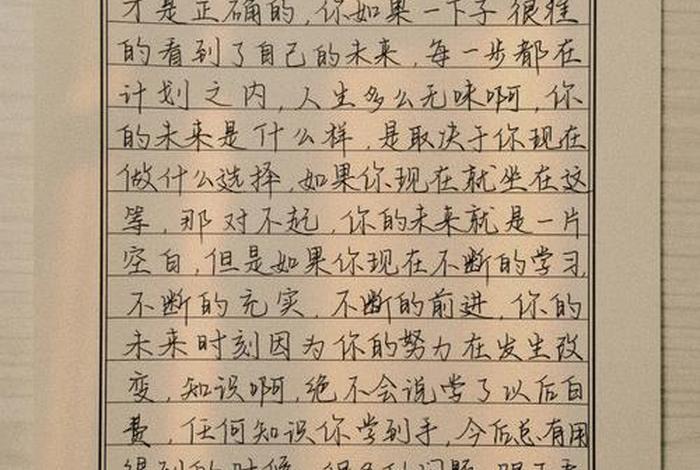 才是正确的，你如果一下子很准
的看到了自己的未来，每一步都在
计划之内，人生多么无味啊，你
的未来是什么样，是取决于你现在
做什么选择，如果你现在就坐在这
等，那对不起，你的未来就是一片
空白，但是如果你现在不断的学习，
不断的充实，不断的前进，你的
未来时刻因为你的努力在发生改
变，知识啊，绝不会说学了以后白
费，任何知识你学到手，今后总有用
得到的时候，很多的问题